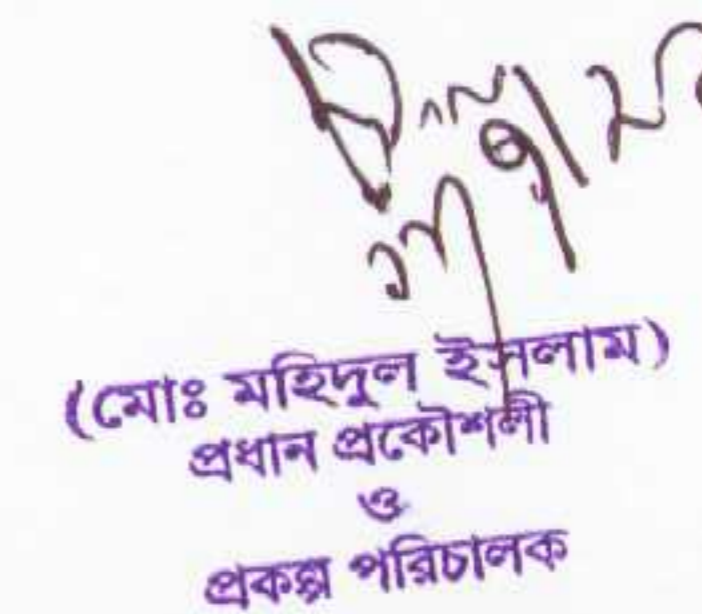 (মোঃ মহিদুল ইসলাম)
প্রধান প্রকৌশলী
ও
প্রকল্প পরিচালক